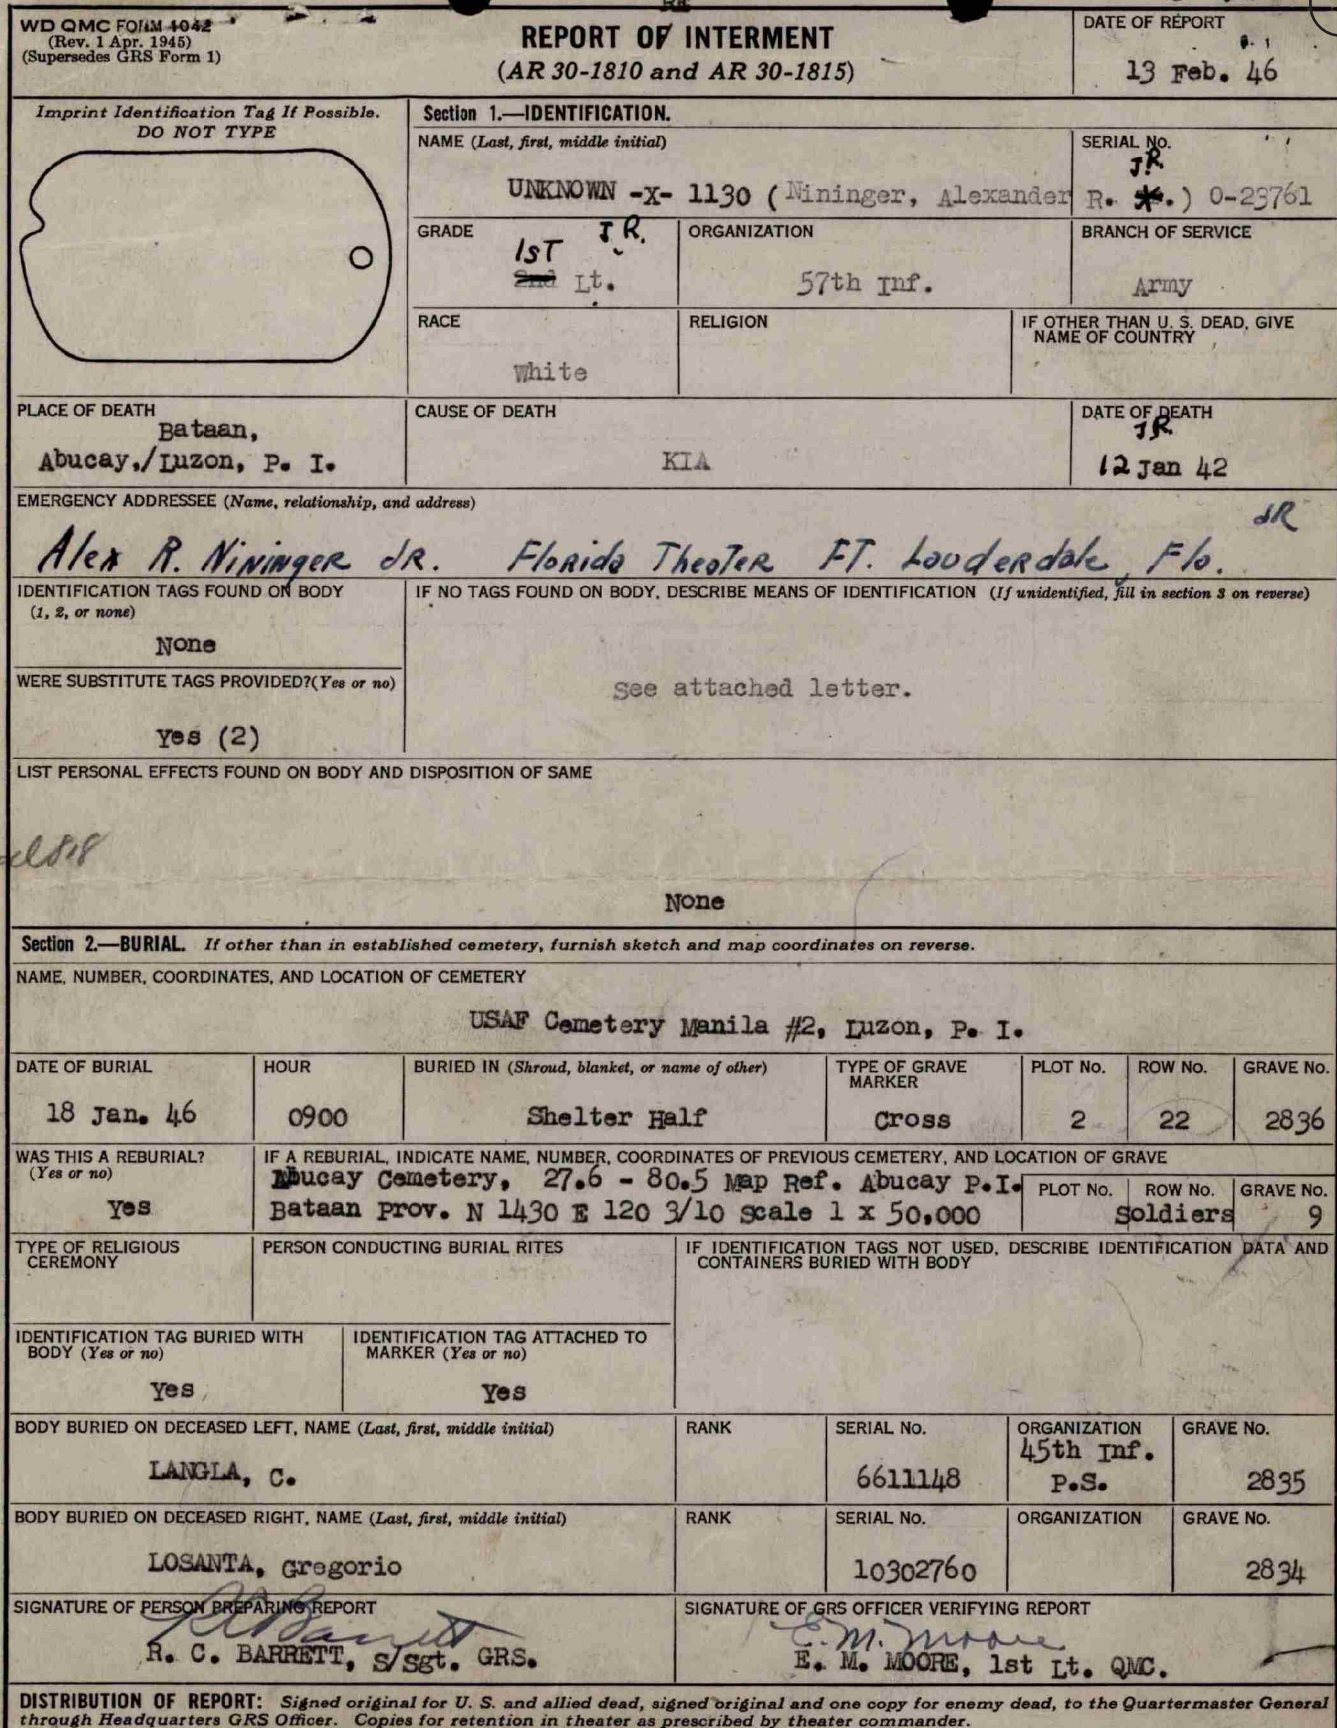 WD QMC FORM 1042
(Rev. 1 Apr. 1945)
(Supersedes GRS Form 1)
REPORT OF INTERMENT
(AR 30-1810 and AR 30-1815)
DATE OF REPORT
13 Feb. 46
Imprint Identification Tag If Possible.
DO NOT TYPE
Section 1.—IDENTIFICATION.
NAME (Last, first, middle initial)
SERIAL No.
JR.
UNKNOWN -X- 1130 (Nininger, Alexander R. .) 0-23761
GRADE
JR.
1ST
2nd Lt.
ORGANIZATION
57th Inf.
BRANCH OF SERVICE
Army
RACE
White
RELIGION
IF OTHER THAN U. S. DEAD, GIVE
NAME OF COUNTRY
PLACE OF DEATH
Bataan,
Abucay,/Luzon, P. I.
CAUSE OF DEATH
KIA
DATE OF DEATH
JR.
12 Jan 42
EMERGENCY ADDRESSEE (Name, relationship, and address)
JR
Alex R. Nininger JR. Florida Theater FT. Lauderdale, Fla.
IDENTIFICATION TAGS FOUND ON BODY
(1, 2, or none)
None
IF NO TAGS FOUND ON BODY, DESCRIBE MEANS OF IDENTIFICATION (If unidentified, fill in section 3 on reverse)
See attached letter.
WERE SUBSTITUTE TAGS PROVIDED?(Yes or no)
Yes (2)
LIST PERSONAL EFFECTS FOUND ON BODY AND DISPOSITION OF SAME
None
Section 2.—BURIAL. If other than in established cemetery, furnish sketch and map coordinates on reverse.
NAME, NUMBER, COORDINATES, AND LOCATION OF CEMETERY
USAF Cemetery Manila #2, Luzon, P. I.
DATE OF BURIAL
18 Jan. 46
HOUR
0900
BURIED IN (Shroud, blanket, or name of other)
Shelter Half
TYPE OF GRAVE
MARKER
Cross
PLOT No.
2
ROW No.
22
GRAVE No.
2836
WAS THIS A REBURIAL?
(Yes or no)
Yes
IF A REBURIAL, INDICATE NAME, NUMBER, COORDINATES OF PREVIOUS CEMETERY, AND LOCATION OF GRAVE
Abucay Cemetery, 27.6 - 80.5 Map Ref. Abucay P.I.
Bataan Prov. N 1430 E 120 3/10 scale 1 x 50,000
PLOT No.
ROW No.
Soldiers
GRAVE No.
9
TYPE OF RELIGIOUS
CEREMONY
PERSON CONDUCTING BURIAL RITES
IF IDENTIFICATION TAGS NOT USED, DESCRIBE IDENTIFICATION DATA AND
CONTAINERS BURIED WITH BODY
IDENTIFICATION TAG BURIED WITH
BODY (Yes or no)
Yes
IDENTIFICATION TAG ATTACHED TO
MARKER (Yes or no)
Yes
BODY BURIED ON DECEASED LEFT, NAME (Last, first, middle initial)
LANGLA, C.
RANK
SERIAL No.
6611148
ORGANIZATION
45th Inf.
P.S.
GRAVE No.
2835
BODY BURIED ON DECEASED RIGHT, NAME (Last, first, middle initial)
LOSANTA, Gregorio
RANK
SERIAL No.
10302760
ORGANIZATION
GRAVE No.
2834
SIGNATURE OF PERSON PREPARING REPORT
R C Barrett
R. C. BARRETT, S/Sgt. GRS.
SIGNATURE OF GRS OFFICER VERIFYING REPORT
E. M. Moore
E. M. MOORE, 1st Lt. QMC.
DISTRIBUTION OF REPORT: Signed original for U. S. and allied dead, signed original and one copy for enemy dead, to the Quartermaster General
through Headquarters GRS Officer. Copies for retention in theater as prescribed by theater commander.